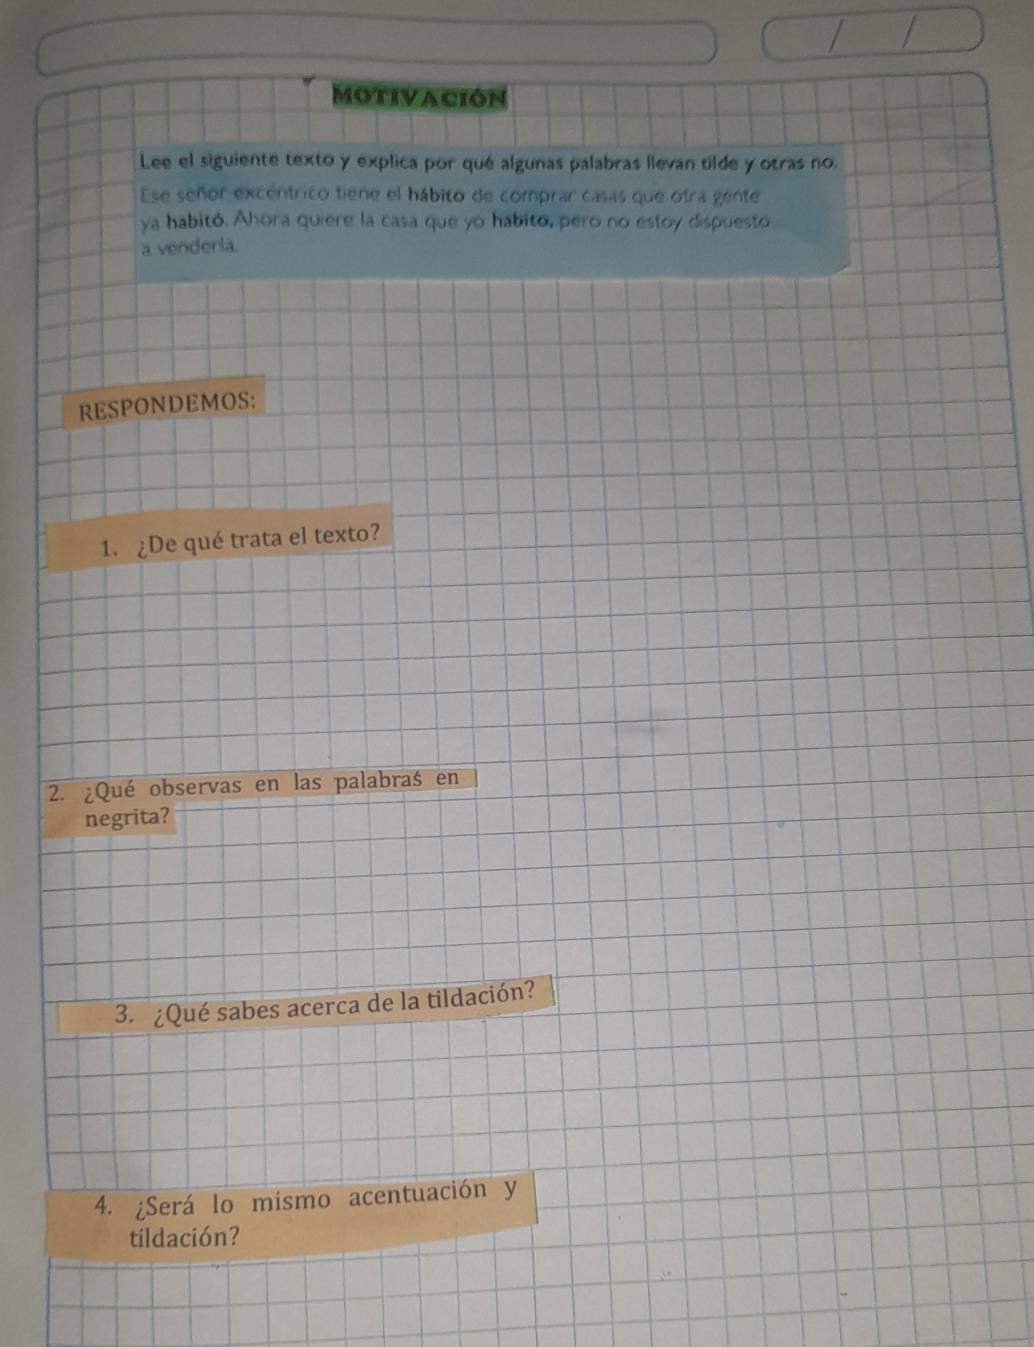 MOTIVACIÓN
Lee el siguiente texto y explica por qué algunas palabras llevan tilde y otras no.
Ese señor excéntrico tiene el hábito de comprar casas que otra gente
ya habitó. Ahora quiere la casa que yo habito, pero no estoy dispuesto
a venderla.
RESPONDEMOS:
1. ¿De qué trata el texto?
2. ¿Qué observas en las palabras en
negrita?
3. ¿Qué sabes acerca de la tildación?
4. ¿Será lo mismo acentuación y
tildación?